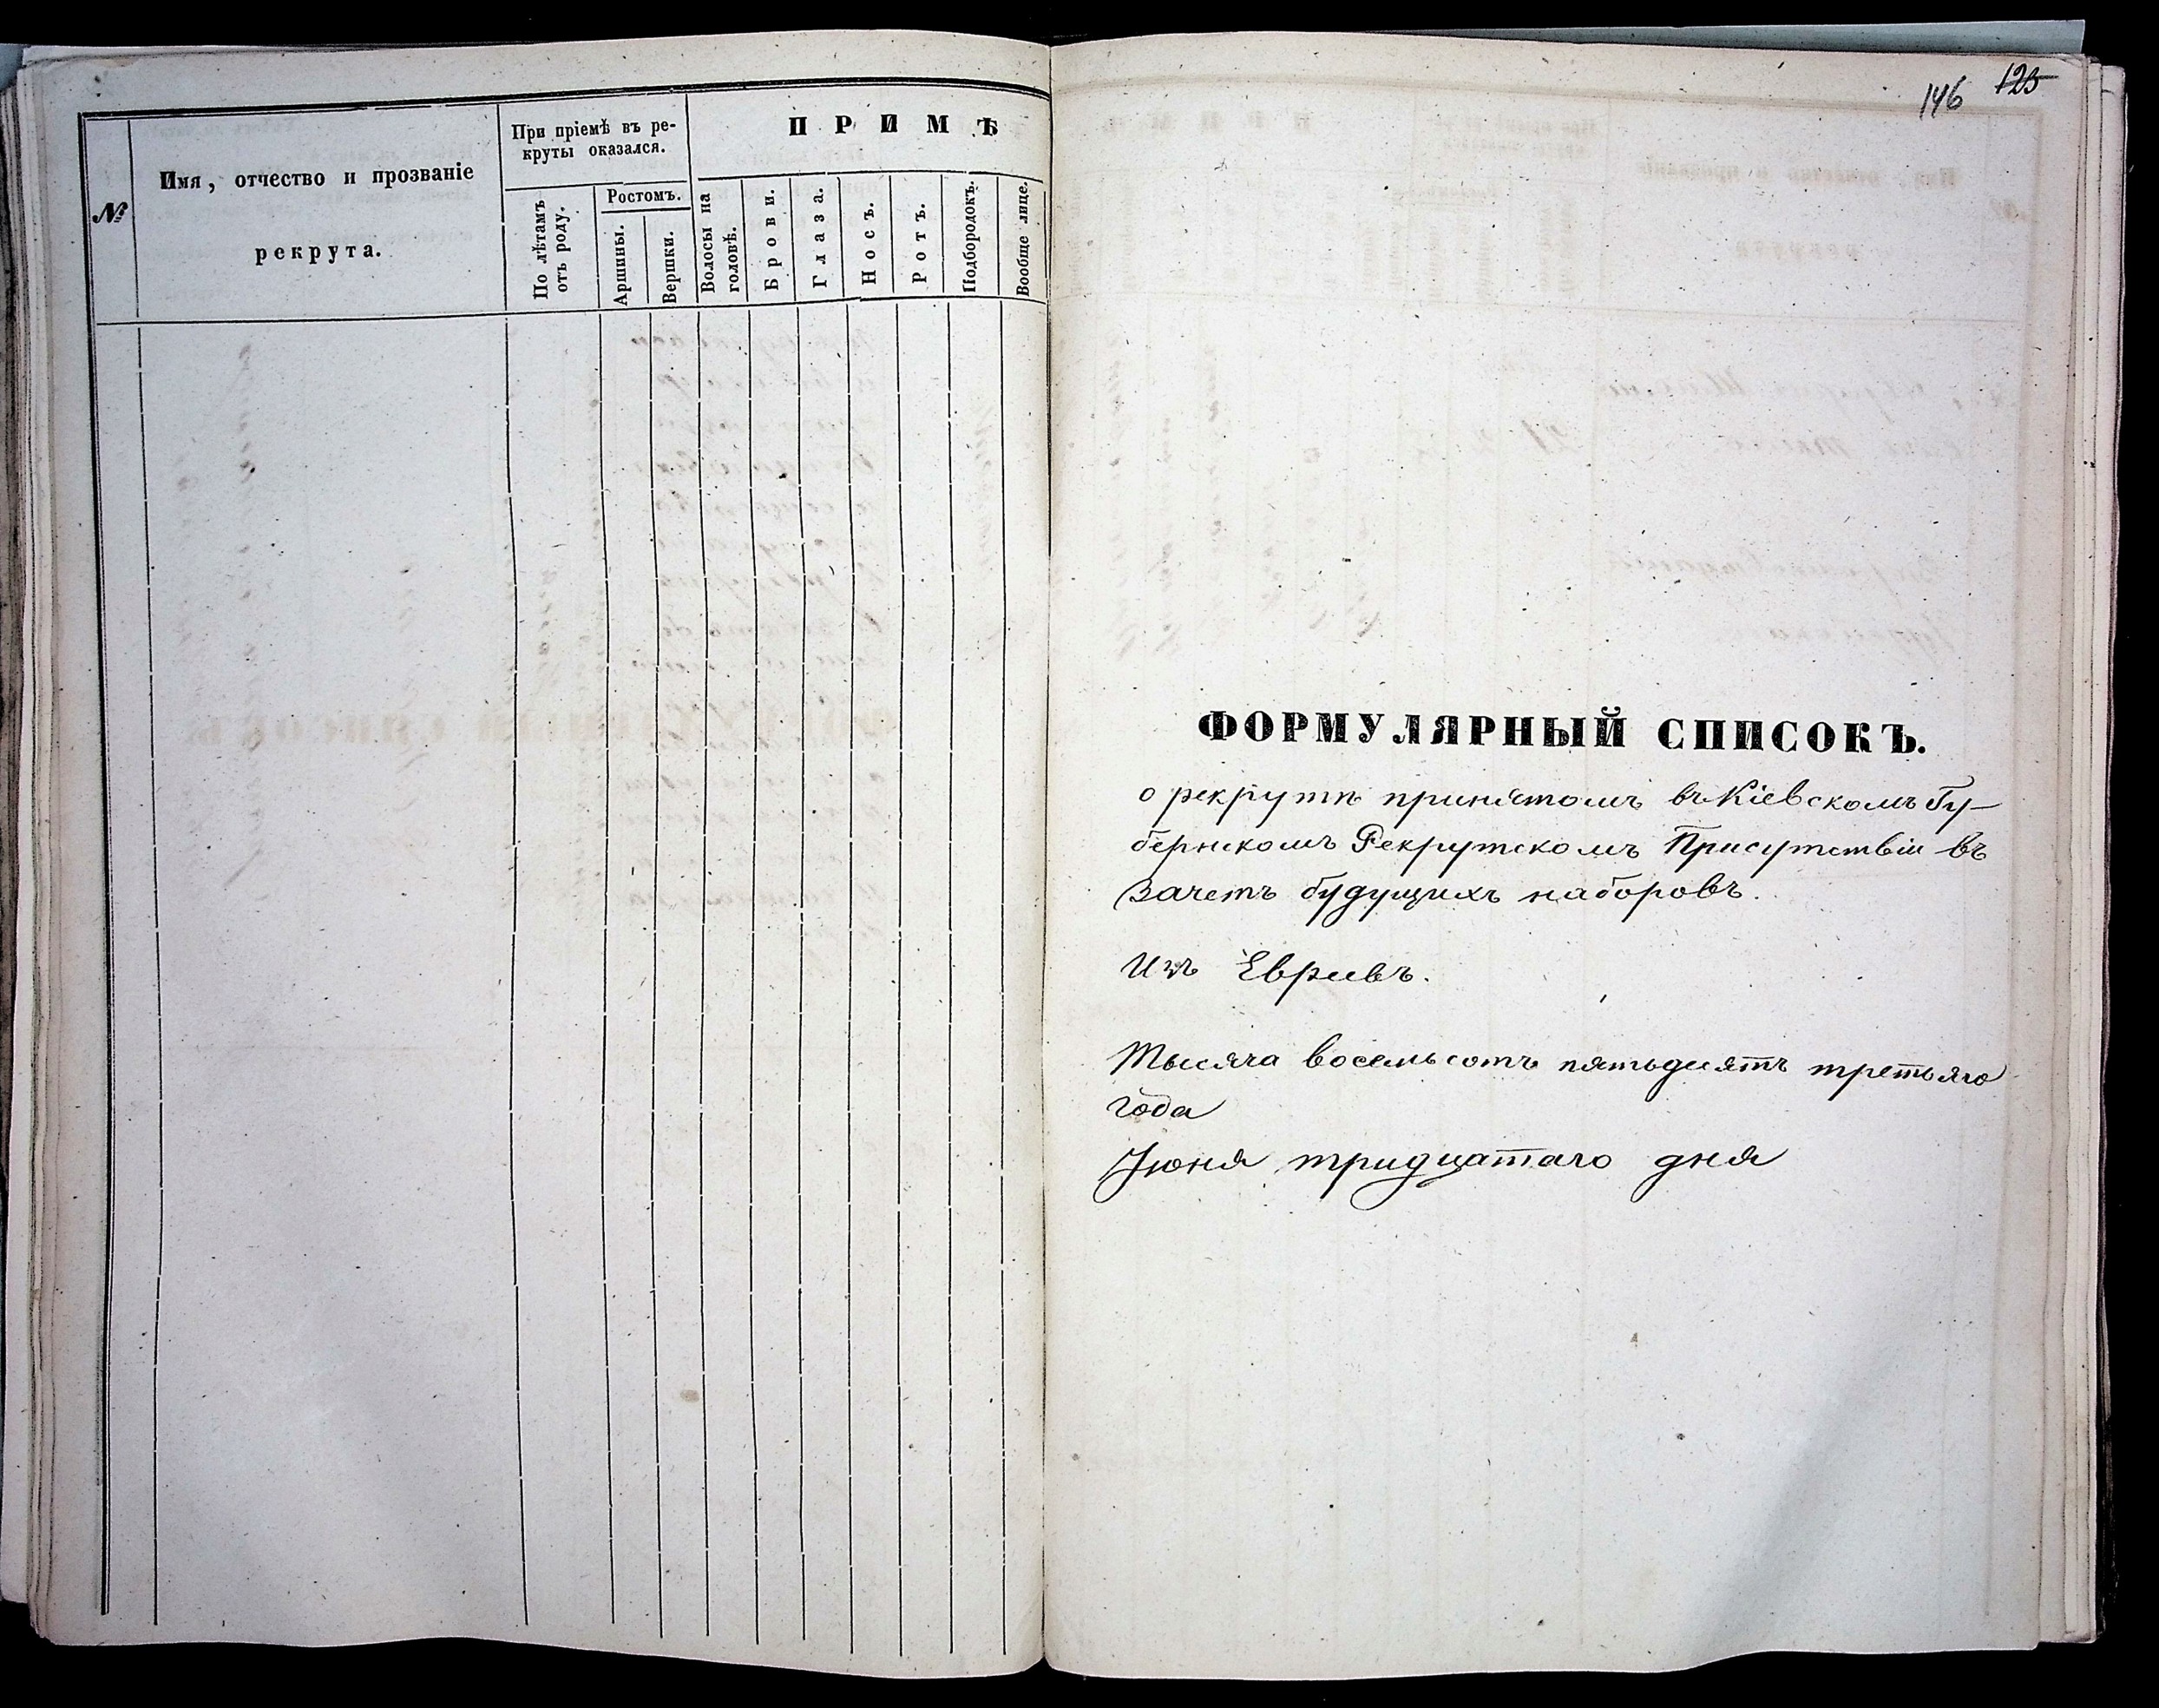 №
Имя, отчество и прозваніе
рекрута.
При пріемѣ въ ре-
круты оказался.
По лѣтамъ
отъ роду.
Ростомъ.
Аршины.
Вершки.
ПРИМѢ
Волосы на
головѣ.
Брови.
Глаза.
Носъ.
Ротъ.
Подбородокъ.
Вообще лице.
146 125
ФОРМУЛЯРНЫЙ СПИСОКЪ.
о рекрутѣ принятомъ въ Кіевскомъ Гу-
бернскомъ Рекрутскомъ Присутствіи въ
зачетъ будущихъ наборовъ.
Изъ Евреевъ.
Тысяча восемьсотъ пятьдесятъ третьяго
года
Іюня тридцатаго дня